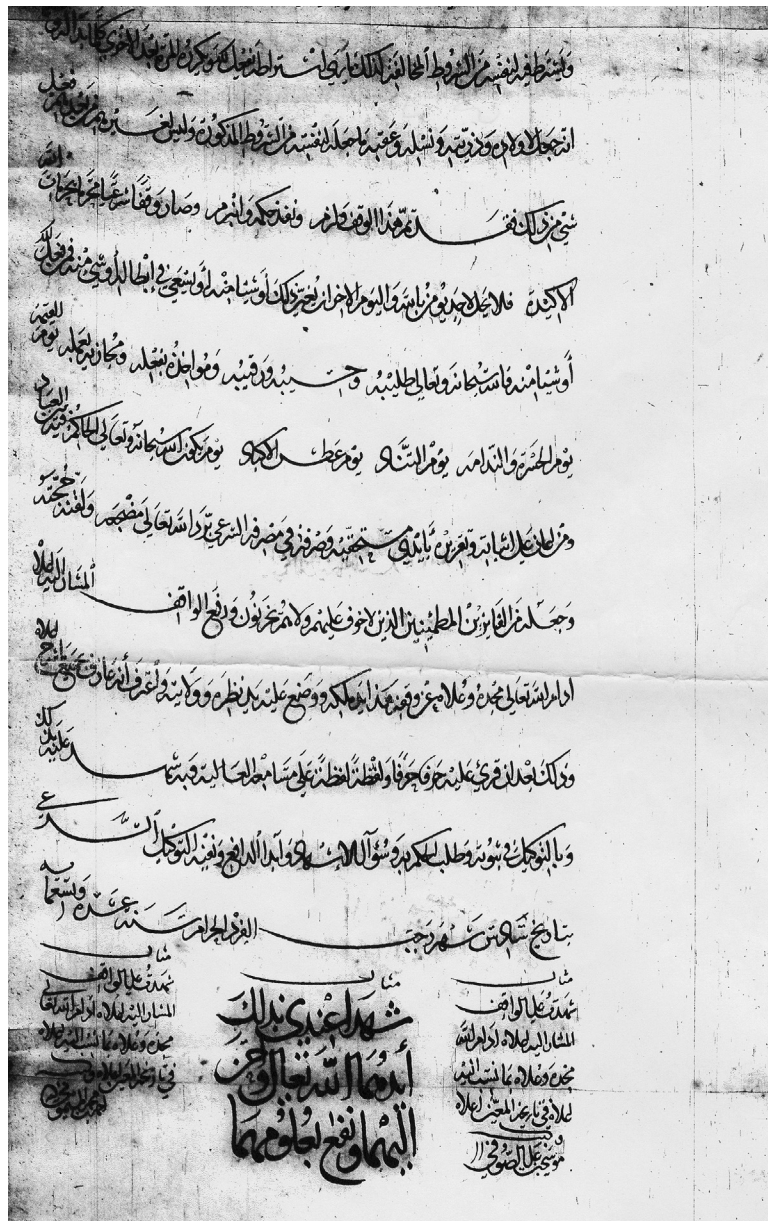 ويشترط فيه لنفسه من الشروط المخالفة لذلك ما يرى اشتراطه يفعل ذلك ويكرره المرة بعد الأخرى كلما بدا له
انه جعل لاولاده وذريته ونسله وعقبه ما جعله لنفسه من الشروط المذكورة وليس لغيرهم فعل
شي من ذلك فقد تم هذا الوقف ولزم ونفذ حكمه وانبرم وصار وقفا شرعيا محرما بحرمات الله
الاكيدة فلا يحل لاحد يؤمن بالله واليوم الاخر ان يغير ذلك أو شيا منه أو يسعى في إبطاله أو شي منه فمن فعل ذلك
أو شيا منه فالله سبحانه وتعالى طليبه وحسيبه ورقيبه ومواخذه بفعله ومجازيه بعمله يوم القيمة
يوم الحسرة والندامه يوم التناد يوم عطش الاكباد يوم يكون الله سبحانه وتعالى الحاكم فيه بين العباد
ومن اعان على اثباته وتقريره بأيدي مستحقيه وصرفه في مصرفه الشرعي برد الله تعالى مضجعه ولقنه حجته
وجعله من الفايزين المطمئنين الذين لا خوف عليهم ولا هم يحزنون ورفع الواقف المشار اليه اعلاه
ادام الله تعالى مجده وعلاه عن وقفه هذا يد ملكه ووضع عليه يد نظره وولايته واعترف أنه عارف بجميع ما شرح اعلاه
وذلك بعد ان قري عليه حرفا حرفا ولفظة لفظة على مسامعه العالية وبه شهد عليه بذلك
وبالتوكيل في ثبوته وطلب الحكم به وسؤال الاشهاد وابدا الدافع ونفيه التوكيل الشرعي
بتاريخ سادس شهر رجب الفرد الحرام سنة عشرة وتسعمايه
مثال
شهدت على الواقف
المشار اليه اعلاه ادام الله
مجده وعلاه بما نسب اليه
اعلاه في تاريخه المعين اعلاه
وكتب
موسى بن علي الصوفي
مثال
شهدا عندي بذلك
أيدهما الله تعالى وأحسن
اليهما ونفع بعلومهما
مثال
شهدت على الواقف
المشار اليه اعلاه ادام الله تعالى
مجده وعلاه بما نسب اليه اعلاه
في تاريخه المعين اعلاه